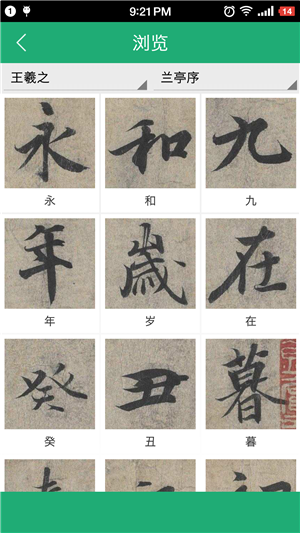 1
9:21 PM
14
浏览
王羲之
兰亭序
永 和 九
永 和 九
年 歳 在
年 岁 在
癸 丑 暮
癸 丑 暮